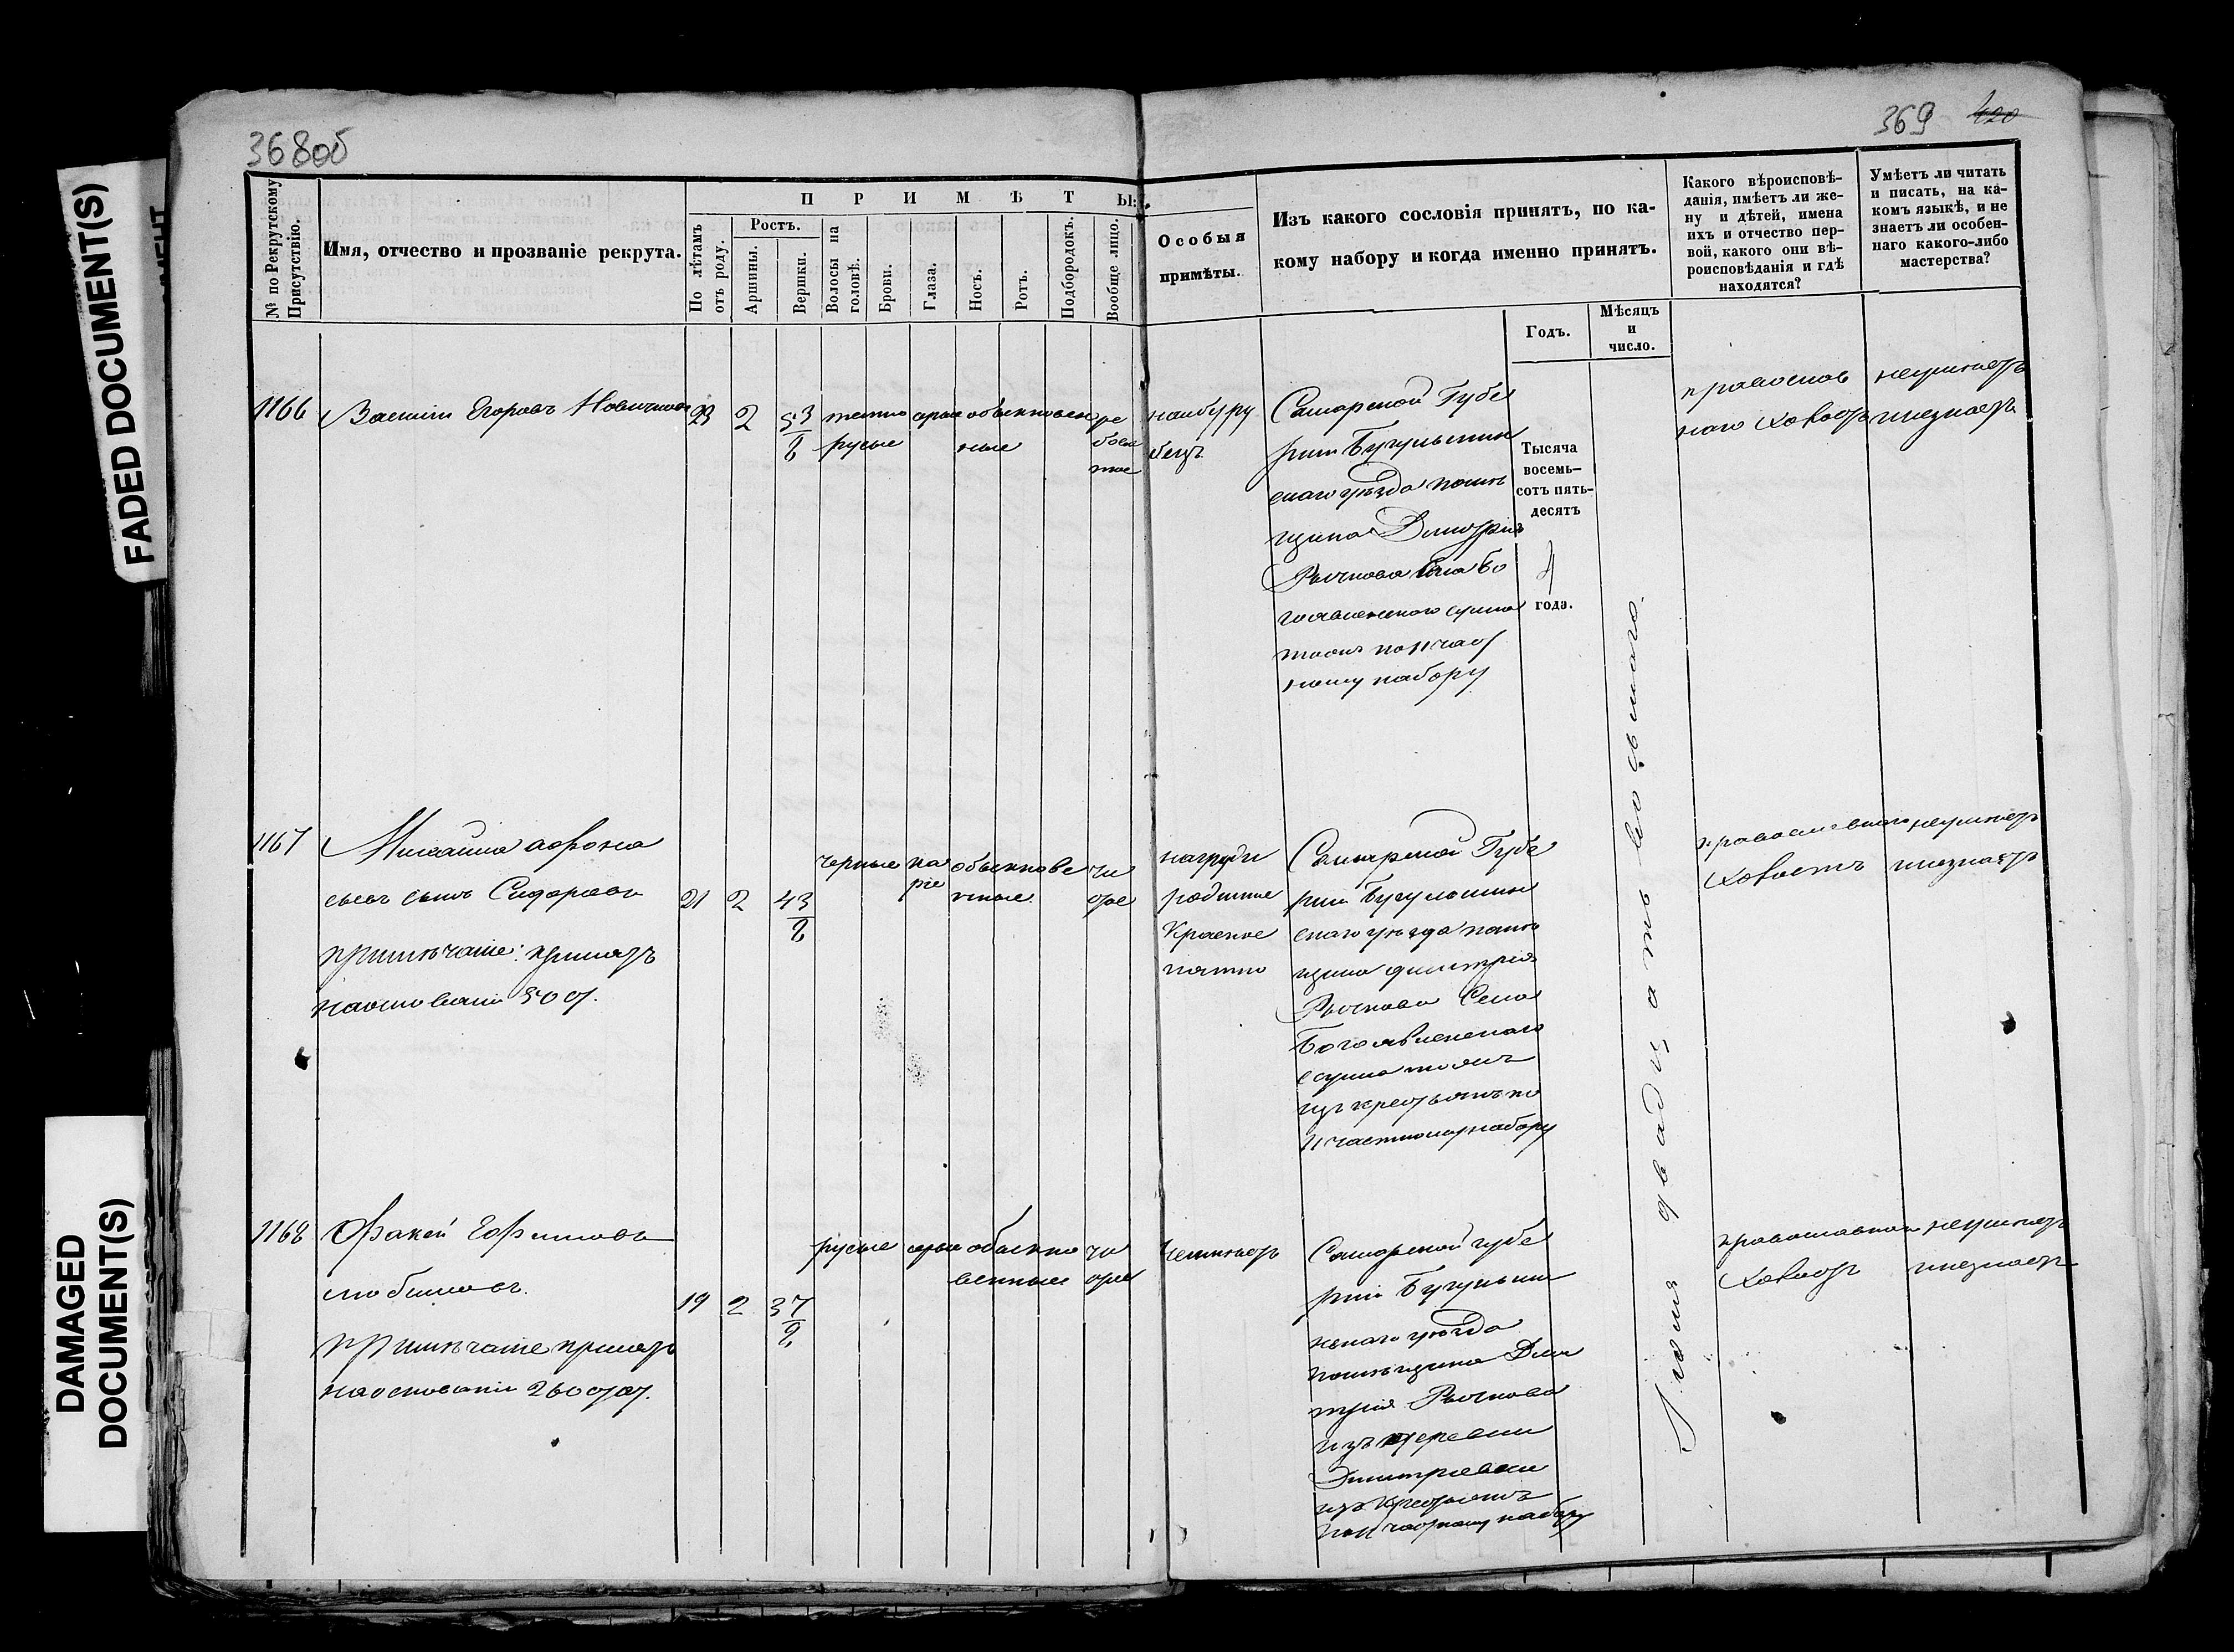 FADED DOCUMENT(S)
DAMAGED
DOCUMENT(S)
368об
369 420
№ по Рекрутскому
Присутствію.
Имя, отчество и прозваніе рекрута.
ПРИМѢТЫ:
По лѣтамъ
отъ роду.
Ростъ.
Аршины.
Вершки.
Волосы на
головѣ.
Брови.
Глаза.
Носъ.
Ротъ.
Подбородокъ.
Вообще лицо.
Особыя
примѣты.
Изъ какого сословія принятъ, по ка-
кому набору и когда именно принятъ.
Годъ.
Мѣсяцъ
и
число.
Какого вѣроисповѣ-
данія, имѣетъ ли же-
ну и дѣтей, имена
ихъ и отчество пер-
вой, какого они вѣ-
роисповѣданія и гдѣ
находятся?
Умѣетъ ли читать
и писать, на ка-
комъ языкѣ, и не
знаетъ ли особен-
наго какого-либо
мастерства?
1166
Василій Егоровъ
23
2
5 3/8
темно
русые
серые
обыкновен
ные
ря
бова
тое
Самарской Губе
рніи Бугульмин
скаго уѣзда помѣ
щика Дмитрія
Рычкова Села Бо
гоявленского
по 11 част
ному набору
Тысяча
восемь-
сотъ пять-
десятъ
4
года.
Іюля двадцать восьмаго.
православ
наго холостъ
неумѣетъ
инезнаетъ
1167
Михайла Афона
сьевъ сынъ Сидоровъ
примѣчаніе: принятъ
наосновани 50 ст.
21
2
4 3/8
черные
ка
ріе
обыкнове
нные
чи
стое
нагруди
родимое
Красное
пятно
Самарской Губе
рніи Бугульмин
скаго уѣзда помѣ
щика Дмитрія
Рычкова Села
Богоявленскаго
изъ крестьянъ по
11 частному набору
православнаго
холостъ
неумѣетъ
инезнаетъ
1168
Фокей Ефимовъ
Любимовъ.
примѣчаніе принятъ
наосновани 260 ст.
19
2
3 7/8
русые
серые
обыкно
венные
чи
стое
Неимѣетъ
Самарской губе
рніи Бугульми
нскаго уѣзда
помѣщика Дми
трія Рычкова
изъ деревни
Дмитревки
изъ крестьянъ
по 11 частному набору
православнаго
холостъ
неумѣетъ
инезнаетъ